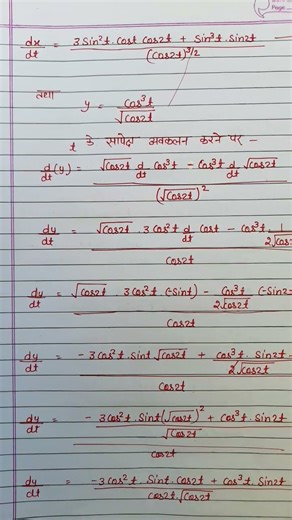 Page...
dx/dt = 3 Sin²t. cost cos2t + Sin³t. Sin2t / (Cos2t)^3/2
तथा
y = Cos³t / √Cos2t
t के सापेक्ष अवकलन करने पर -
d/dt (y) = √Cos2t d/dt Cos³t - Cos³t d/dt √Cos2t / (√Cos2t)²
dy/dt = √Cos2t . 3 Cos²t d/dt Cost - Cos³t. 1/2√Cos / Cos2t
dy/dt = √Cos2t . 3 Cos²t. (-Sint) - Cos³t/2√Cos2t (-Sin2t / Cos2t
dy/dt = - 3 Cos²t. Sint √Cos2t + Cos³t. Sin2t/2√Cos2t / Cos2t
dy/dt = - 3 Cos²t. Sint (√Cos2t)² + Cos³t. Sin2t / √Cos2t / Cos2t
dy/dt = -3 Cos²t. Sint. Cos2t + Cos³t. Sin2t / Cos2t. √Cos2t